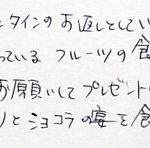 ンタインのお返しとしてい
っている フルーツの食
お願いしてプレゼント
りとショコラの宴を食